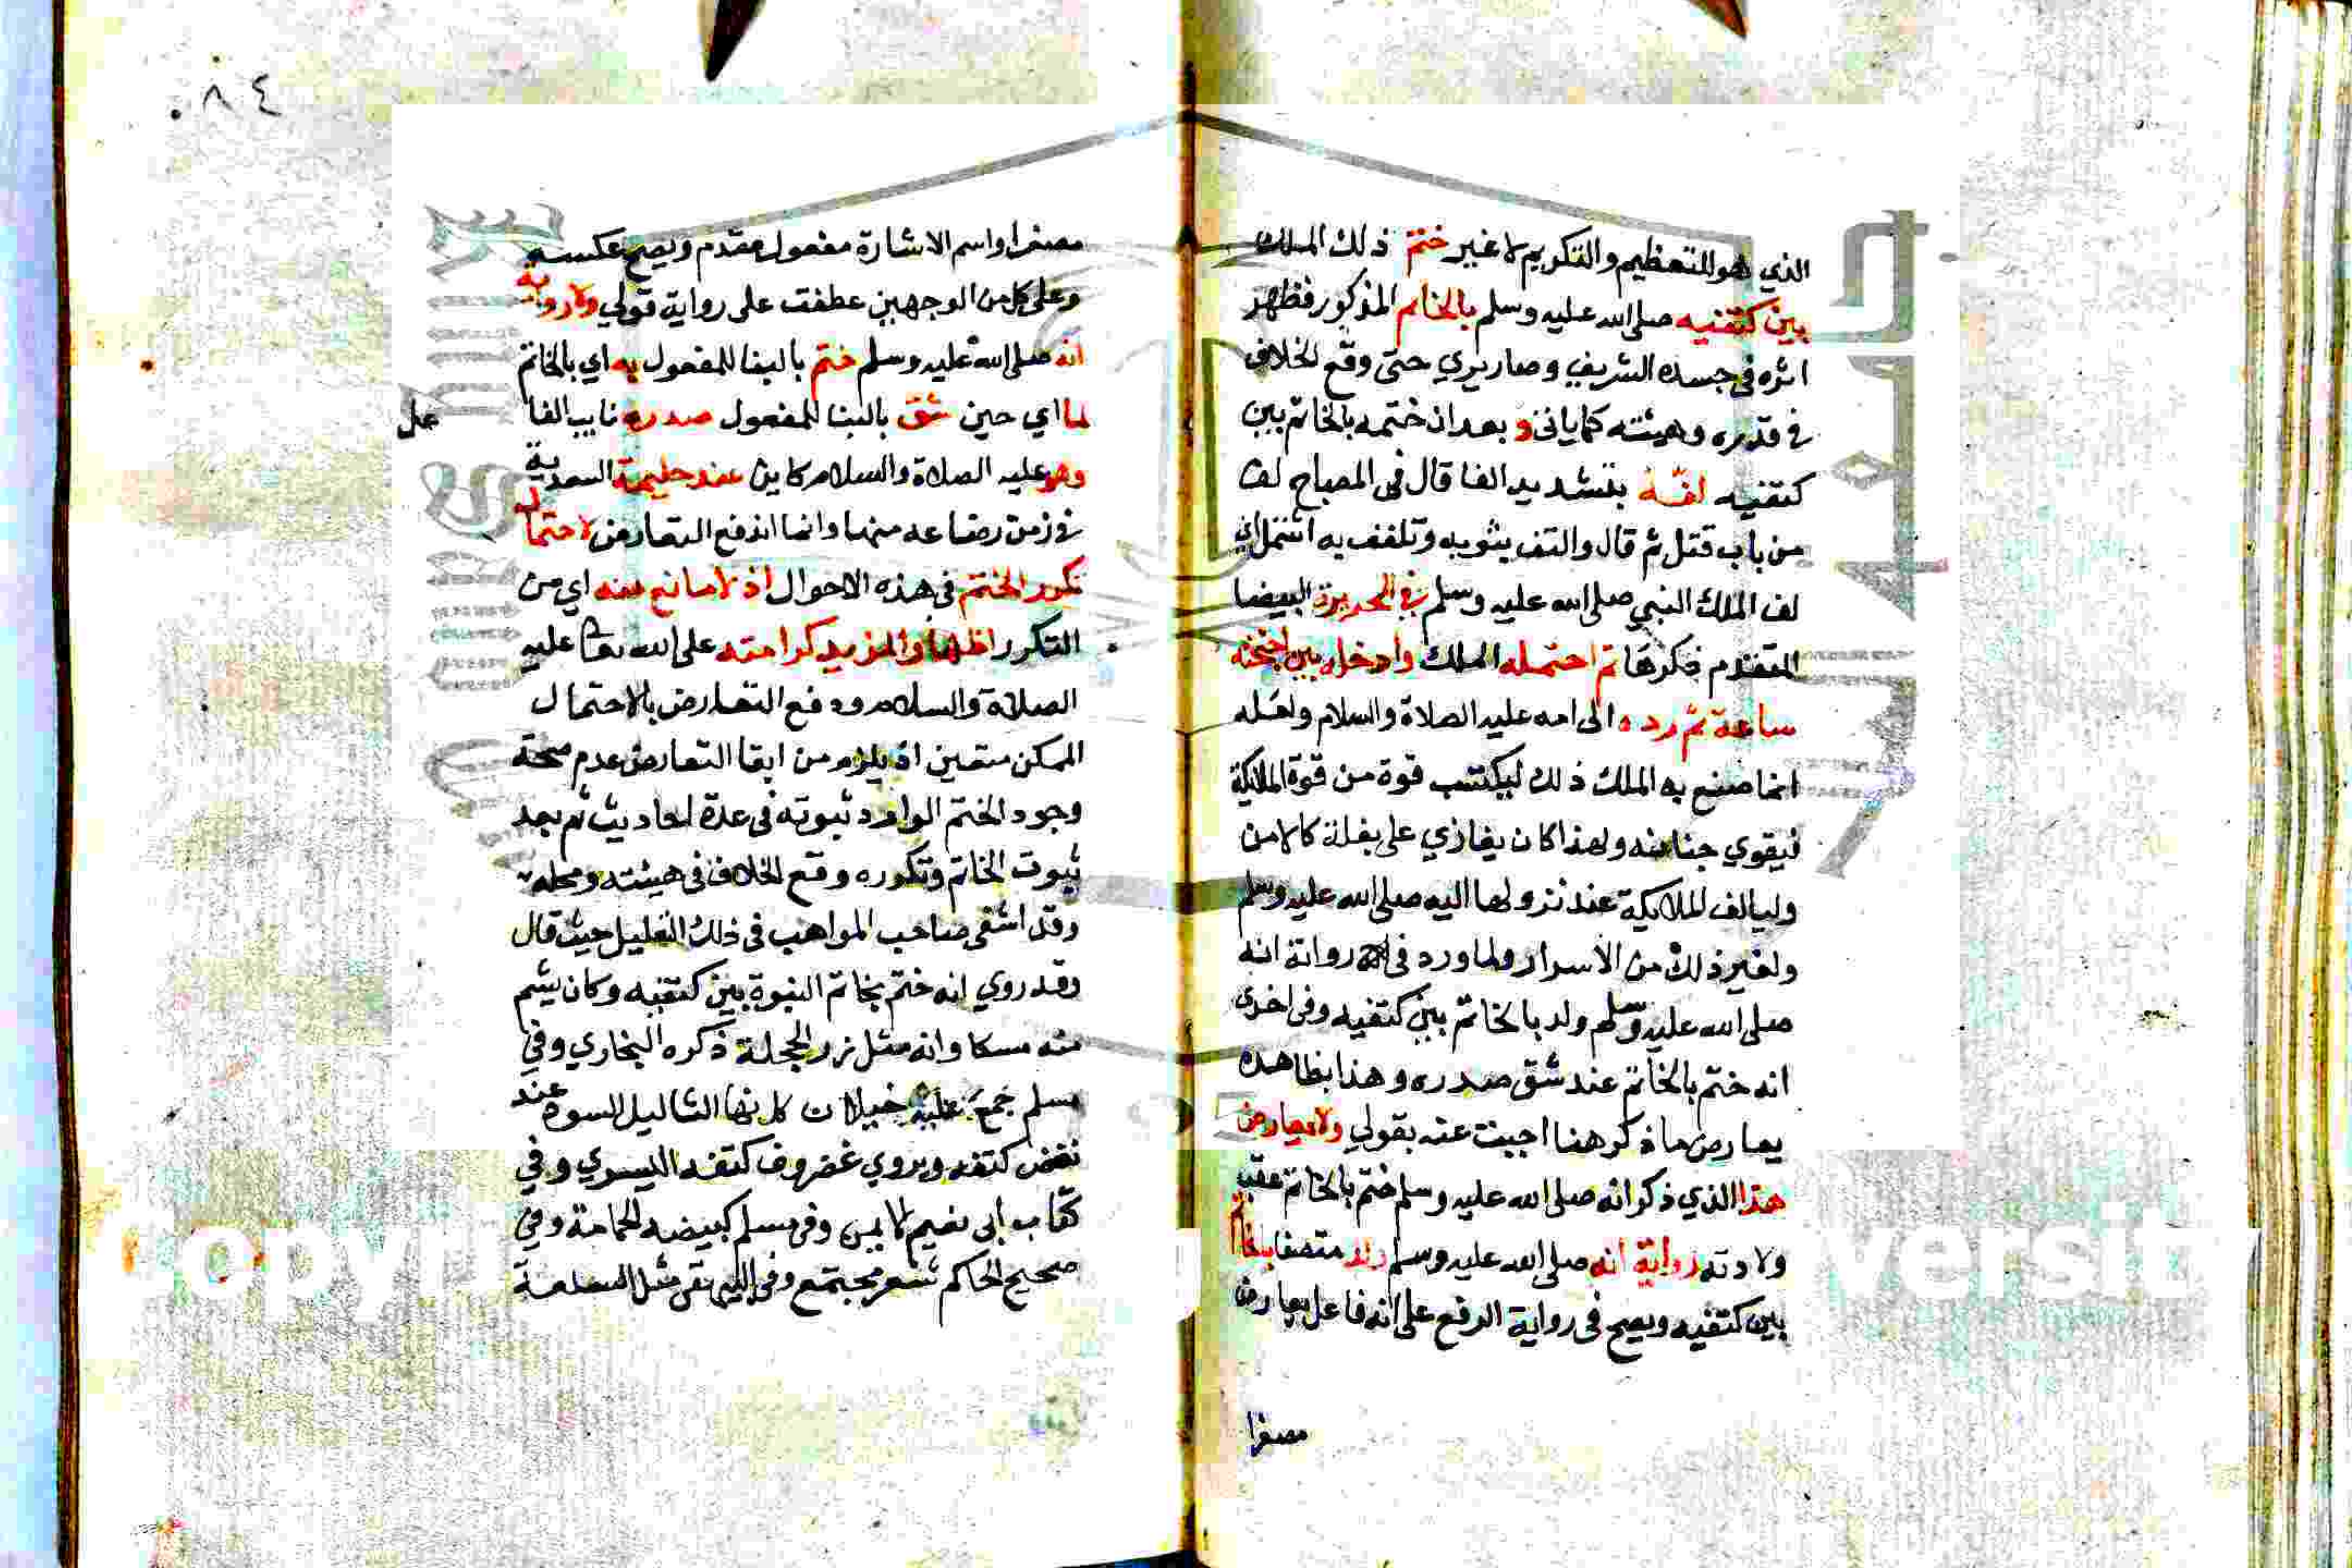 الذي هو للتعظيم والتكريم لا غير ختم ذلك الملك
بين كتفيه صلى الله عليه وسلم بالخاتم المذكور فظهر
اثره في جسده الشريف وصار يري حتى وقع الخلاف
في قدره وهيئته كما ياتى و بعد ان ختمه بالخاتم بين
كتفيه لفّه بتشديد الفا قال فى المصباح لف
من باب قتل ثم قال والتف بثوبه وتلفف به اشتمل اي
لف الملك النبي صلى الله عليه وسلم في الحريرة البيضا
المتقدم ذكرها ثم احتمله الملك وادخله بين اجنحته
ساعة ثم رده الى امه عليه الصلاة والسلام ولعله
انما صنع به الملك ذلك ليكتسب قوة من قوة الملايكة
فيقوي جنانه ولهذا كان يغازي على بغلة كالامن
وليالف الملايكة عند نزولها اليه صلى الله عليه وسلم
ولغير ذلك من الاسرار ولما ورد فى رواية انه
صلى الله عليه وسلم ولد بالخاتم بين كتفيه وفى اخرى
انه ختم بالخاتم عند شق صدره وهذا بظاهره
يعارض ما ذكر هنا اجبت عنه بقولي ولا يعارض
هذا الذي ذكر انه صلى الله عليه وسلم ختم بالخاتم عقب
ولادته رواية انه صلى الله عليه وسلم ولد متصفا بالخاتم
بين كتفيه ويصح فى رواية الرفع على انه فاعل يعارض
٠٨٤
واسم الاشارة مفعول مقدم ويصح عكسه
وعلى كل من الوجهين عطفت على رواية قولي ولا رواية
انه صلى الله عليه وسلم ختم بالبنا للمفعول به اي بالخاتم
لما اي حين شق بالبنا للمفعول صدره نايب الفا
عل
وهو عليه الصلاة والسلام كاين عند حليمة السعدية
في زمن رضاعه منها وانما اندفع التعارض لاحتمال
تكرر الختم في هذه الاحوال اذ لا مانع منه اي من
التكرر اظهارا لمزيد كرامته على الله تعالى عليه
الصلاة والسلام ودفع التعارض بالاحتمال
الممكن متعين اذ يلزم من ابقا التعارض عدم صحة
وجود الختم الوارد ثبوته فى عدة احاديث ثم بعد
ثبوت الخاتم وتكرره وقع الخلاف فى هيئته ومحله
وقد اشفى صاحب المواهب فى ذلك الغليل حيث قال
وقد روي انه ختم بخاتم النبوة بين كتفيه وكان يشم
منه مسكا وانه مثل زر الحجلة ذكره البخاري وفي
مسلم جمع عليه خيلان كانها الثاليل السود عند
نغض كتفه ويروي غضروف كتفه اليسري وفي
كتاب أبى نعيم الايمن وفى مسلم كبيضة الحمامة وفي
صحيح الحاكم شعر مجتمع وفى البيهقى مثل السلعة